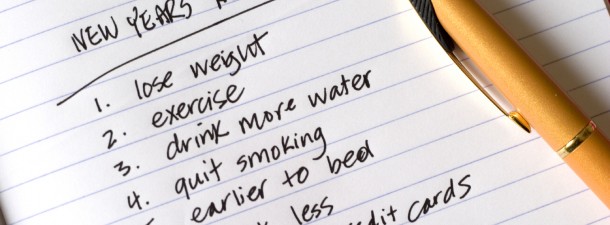 NEW YEARS
1. lose weight
2. exercise
3. drink more water
4. quit smoking
earlier to bed
less
cards